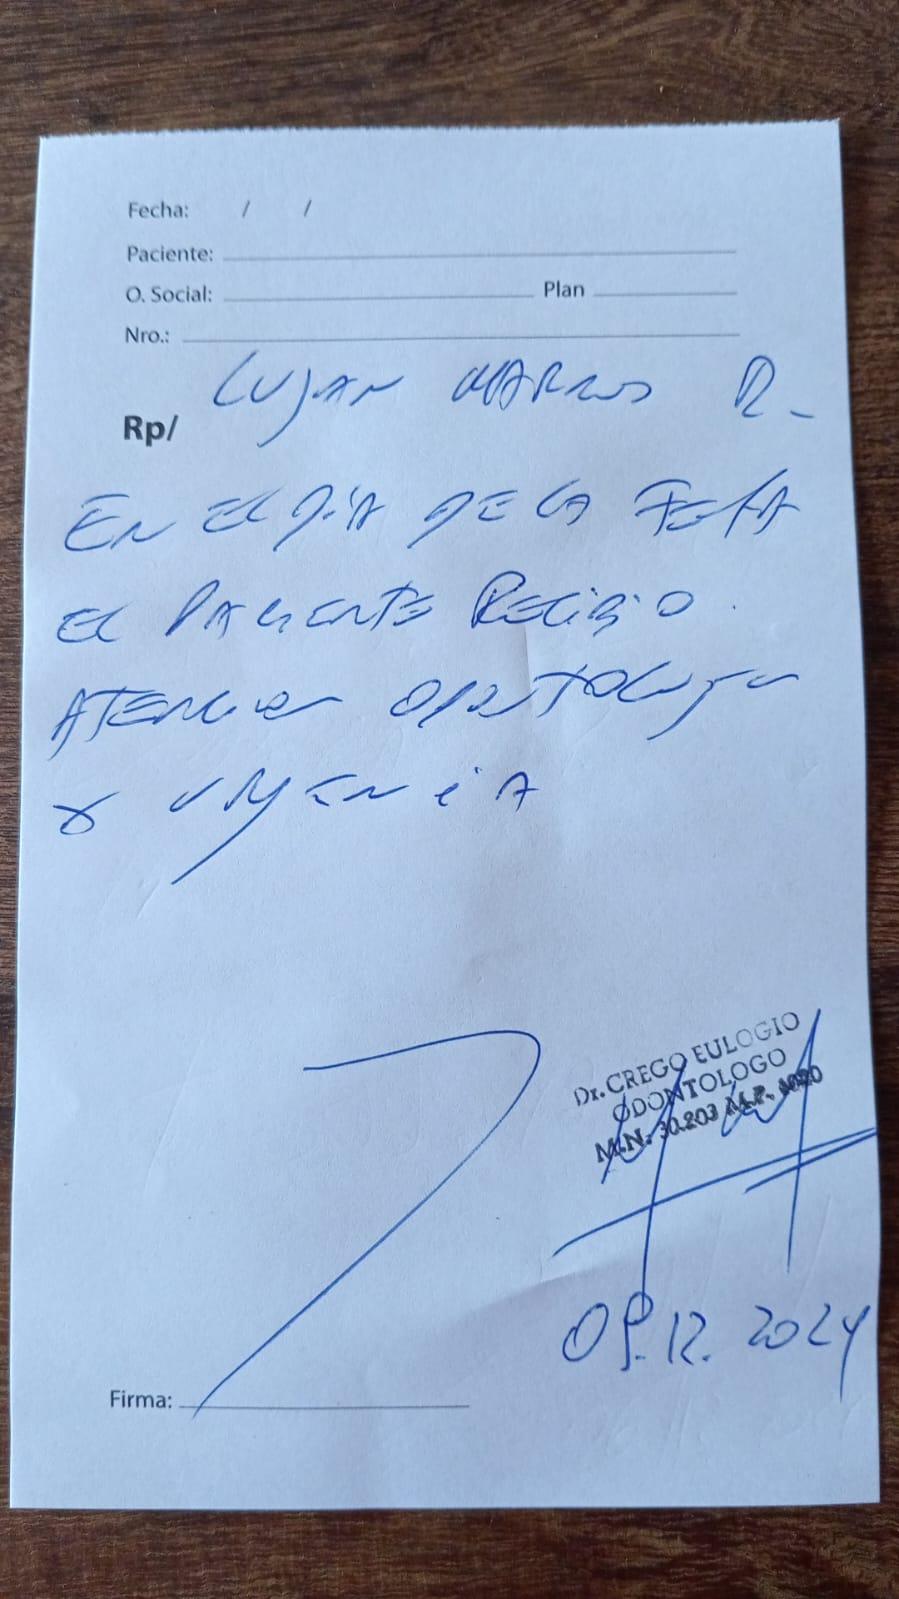 Fecha: / /
Paciente:
O. Social: Plan
Nro.:
LUJAN MARCOS R-
Rp/
EN EL DIA DE LA FECHA
EL PACIENTE RECIBIO
ATENCION ODONTOLOGICA
X URGENCIA
Dr. CREGO EULOGIO
ODONTOLOGO
M.N. 30.203 M.P.
09.12.2024
Firma: